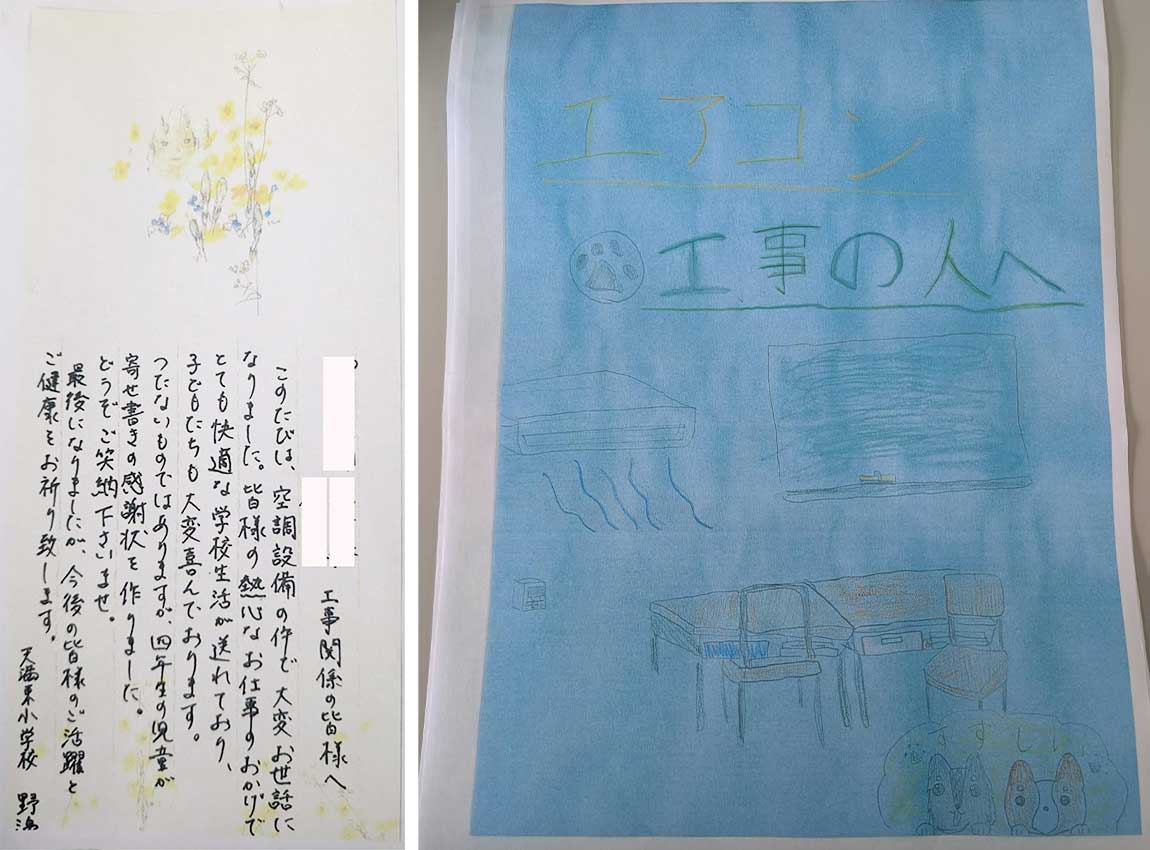 工事関係の皆様へ
このたびは、空調設備の件で大変お世話に
なりました。皆様の熱心なお仕事のおかげで
とても快適な学校生活が送れており、
子どもたちも大変喜んでおります。
つたないものではありますが、四年生の児童が
寄せ書きの感謝状を作りました。
どうぞご笑納下さいませ。
最後になりましたが、今後の皆様のご活躍と
ご健康をお祈り致します。
天満東小学校 野
エアコン
工事の人へ
すずしい